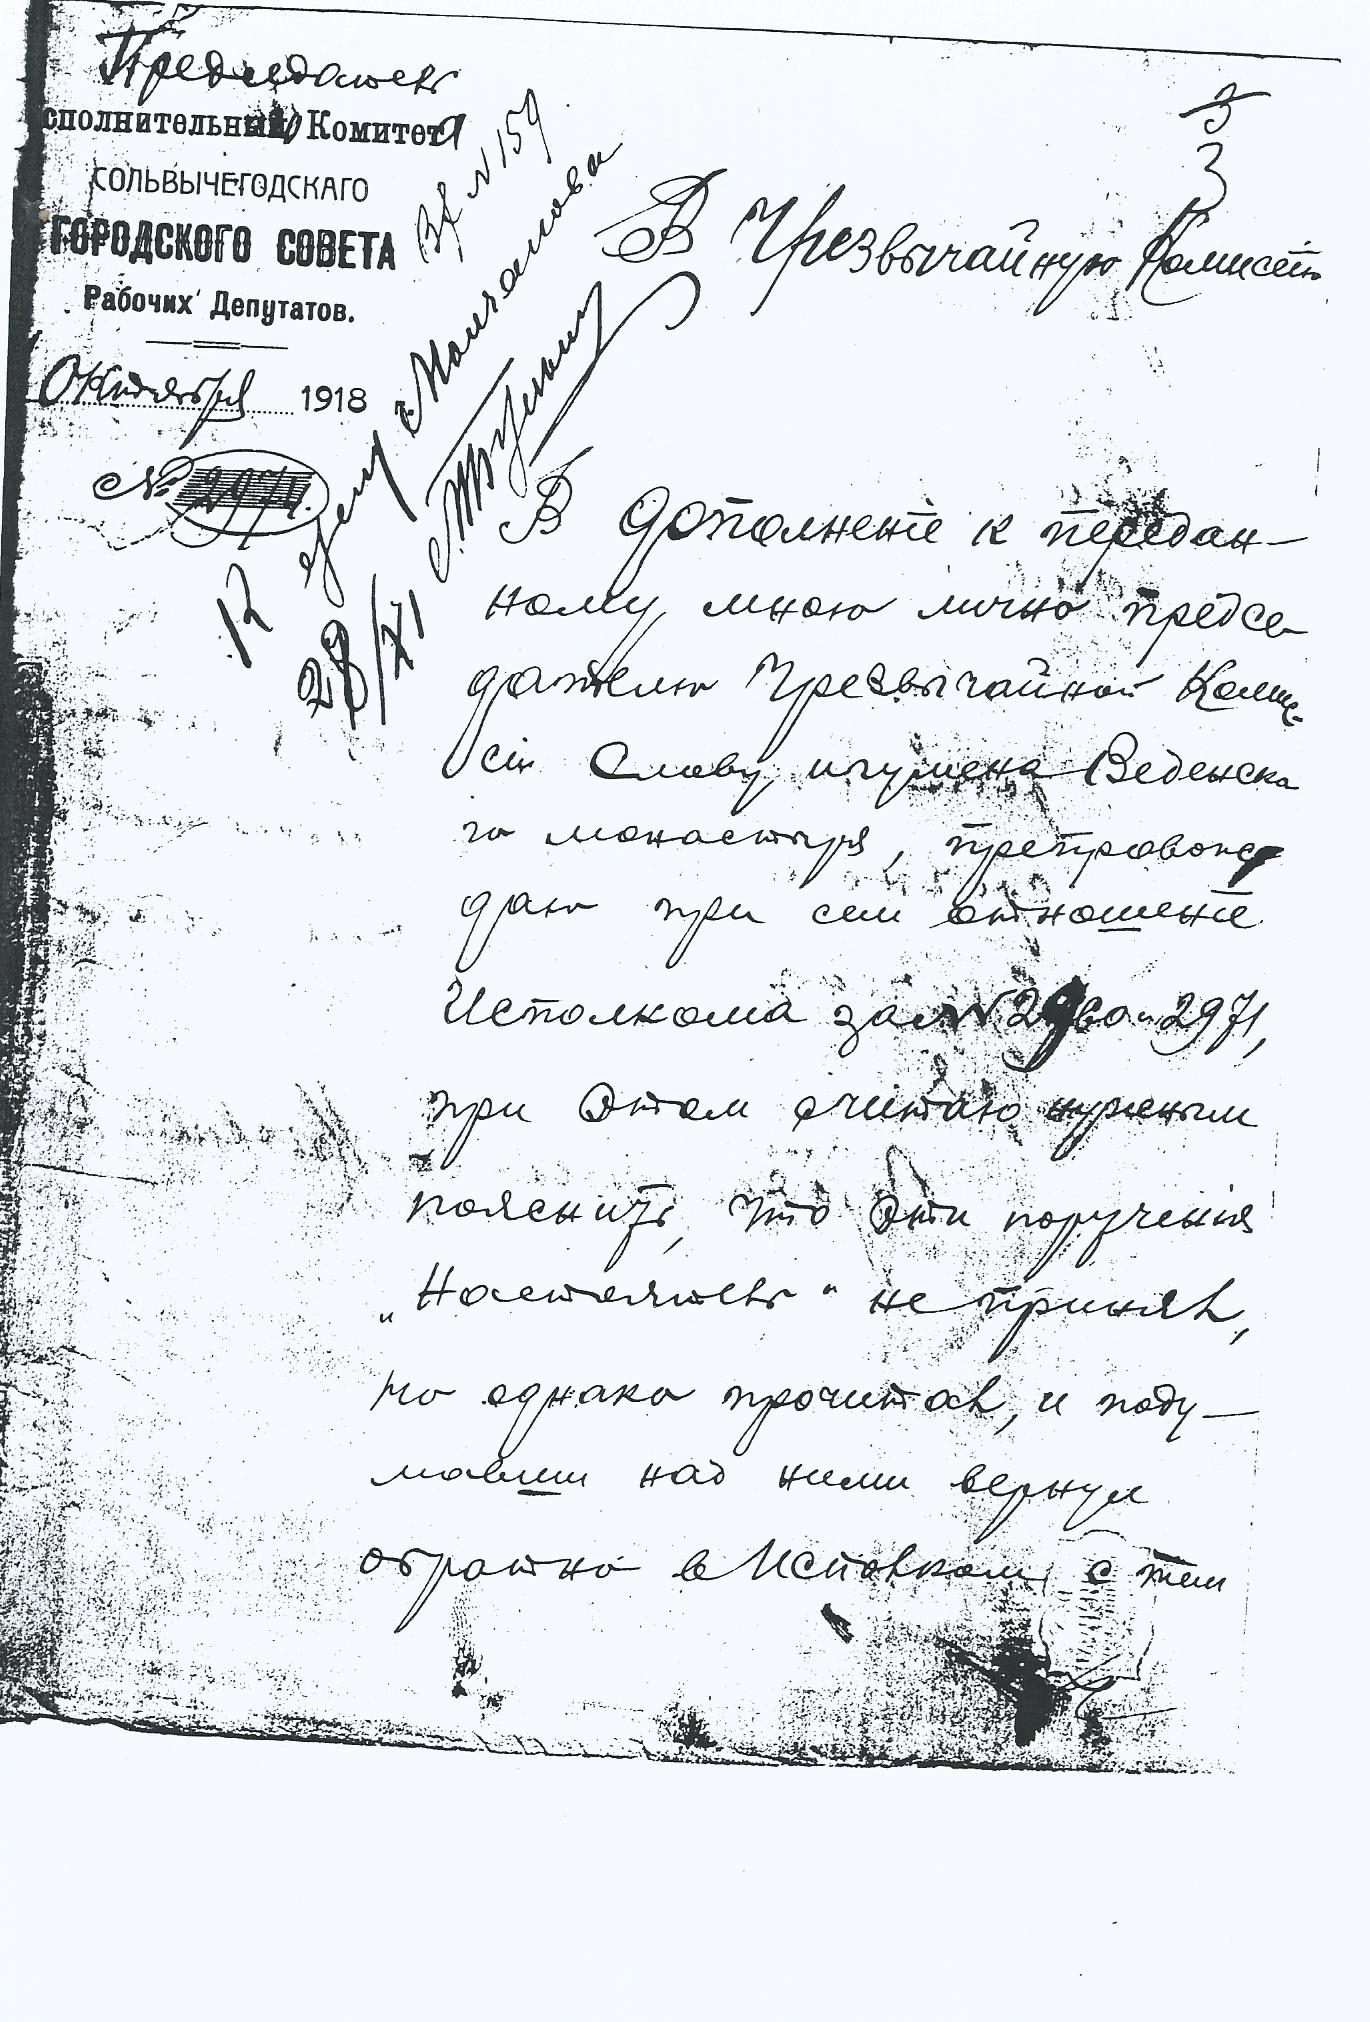 Председатель
сполнительный Комитета
СОЛЬВЫЧЕГОДСКАГО
ГОРОДСКОГО СОВЕТА
Рабочих Депутатов.
Октября 1918
№ 2974.
Вх N 159
К делу Молчанова
28/XI
3
3
В Чрезвычайную Комиссію
В дополненіе к передан-
ному мною лично предсе-
дателю Чрезвычайной Комис-
сіи Слову игумена Веденска
го монастыря, препровож
даю при сем отношеніе
Исполкома за NN 2960 и 2971,
при этом считаю нужным
пояснить, что эти порученія
„Настоятель" не принял,
но однако прочитал, и поду-
мавши над ними вернул
обратно в Исполком с тем